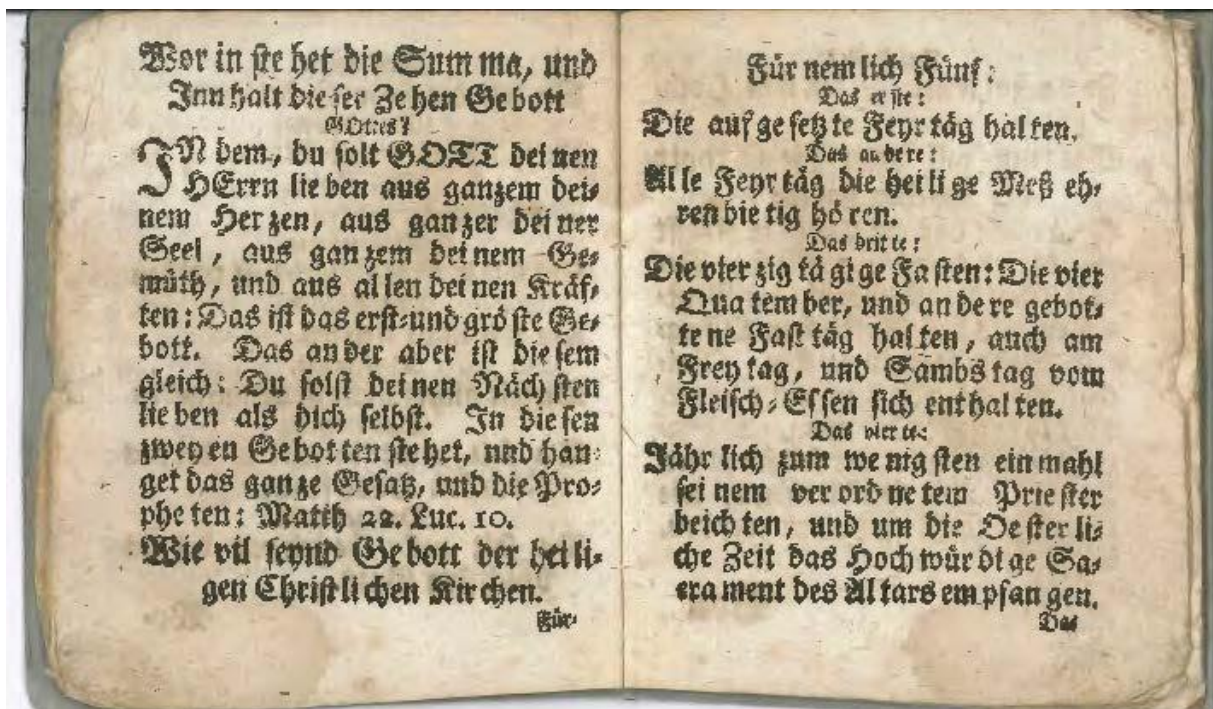 Wor in ste het die Sum ma, und
Inn halt die ser Ze hen Ge bott
GOttes?
IN dem, du solt GOTT dei nen
HErrn lie ben aus ganzem dei-
nem Her zen, aus gan zer dei ner
Seel, aus gan zem dei nem Ge-
müth, und aus al len dei nen Kräf-
ten: Das ist das erst-und grö ste Ge-
bott. Das an der aber ist die sem
gleich: Du solst dei nen Näch sten
lie ben als dich selbst. In die sen
zwey en Ge bot ten ste het, und han-
get das gan ze Gesatz, und die Pro-
phe ten: Matth 22. Luc. 10.
Wie vil seynd Ge bott der hei li-
gen Christ li chen Kir chen.
Für-
Für nem lich Fünf:
Das er ste:
Die auf ge setz te Feyr täg hal ten.
Das an de re:
Al le Feyr täg die hei li ge Meß eh-
ren bie tig hö ren.
Das drit te:
Die vier zig tä gi ge Fa sten: Die vier
Qua tem ber, und an de re gebot-
te ne Fast täg hal ten, auch am
Frey tag, und Sambs tag vom
Fleisch-Es sen sich ent hal ten.
Das vier te:
Jähr lich zum we nig sten ein mahl
sei nem ver ord ne tem Prie ster
beich ten, und um die Oe ster li-
che Zeit das Hoch wür di ge Sa-
cra ment des Al tars em pfan gen.
Das